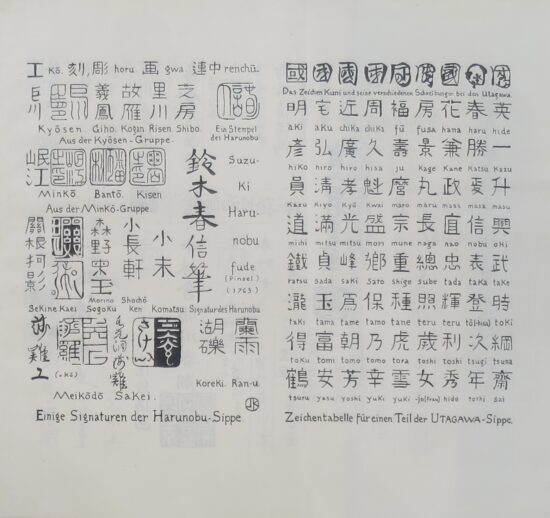 工 Kō. 刻,彫 horu 画, gwa. 連中 renchū.
巨川 義鳳 故雁 里川 芝房
Kyōsen. Giho. Kogan. Risen. Shibo. Ein Stempel des Harunobu
Aus der Kyōsen-Gruppe.
岷江
Minkō Bantō. Kisen
Aus der Minkō-Gruppe.
鈴木春信筆
Suzu-
Ki
Haru-
nobu
fude
(Pinsel.)
(1763)
關根 森野 小長軒 小末
Morino Shōchō
Sekine Kaei Sogoku Ken Komatsu Signatur des Harunobu
湖礫 蘭雨
Koreki. Ran-u
Meikōdō Sakei.
Einige Signaturen der Harunobu-Sippe.
JK
Das Zeichen Kuni und seine verschiedenen Schreibungen bei den Utagawa.
明 宅 近 周 福 房 花 春 英
aKi aKu chiKa chiKa fū fusa hana haru hide
彦 弘 廣 久 壽 景 兼 勝 一
hiKo hiro hiro hisa ju Kage Kane Katsu Kazu
員 清 孝 魁 麿 丸 政 爲 升
Kazu Kiyo Kyō Kwai maro maru masa masa masu
道 滿 光 盛 宗 長 宜 信 興
michi mitsu mitsu mori mune naga nao nobu oKi
鐵 貞 峰 郷 重 總 忠 表 武
ratsu sada saKi Sato shige fube tada taKa taKe
瀧 玉 爲 保 種 照 輝 登 時
taKi tama tame tamo tane teru teru tō(Kun) toKi
得 富 朝 乃 虎 歳 利 次 綱
toKu tomi tomo tomo tora toshi toshi tsugi tsuna
鶴 安 芳 幸 雪 女 秀 年 齋
tsuru yasu yoshi yuKi yuKi -jo(Frau) hide toshi Sai
Zeichentabelle für einen Teil der UTAGAWA-Sippe.